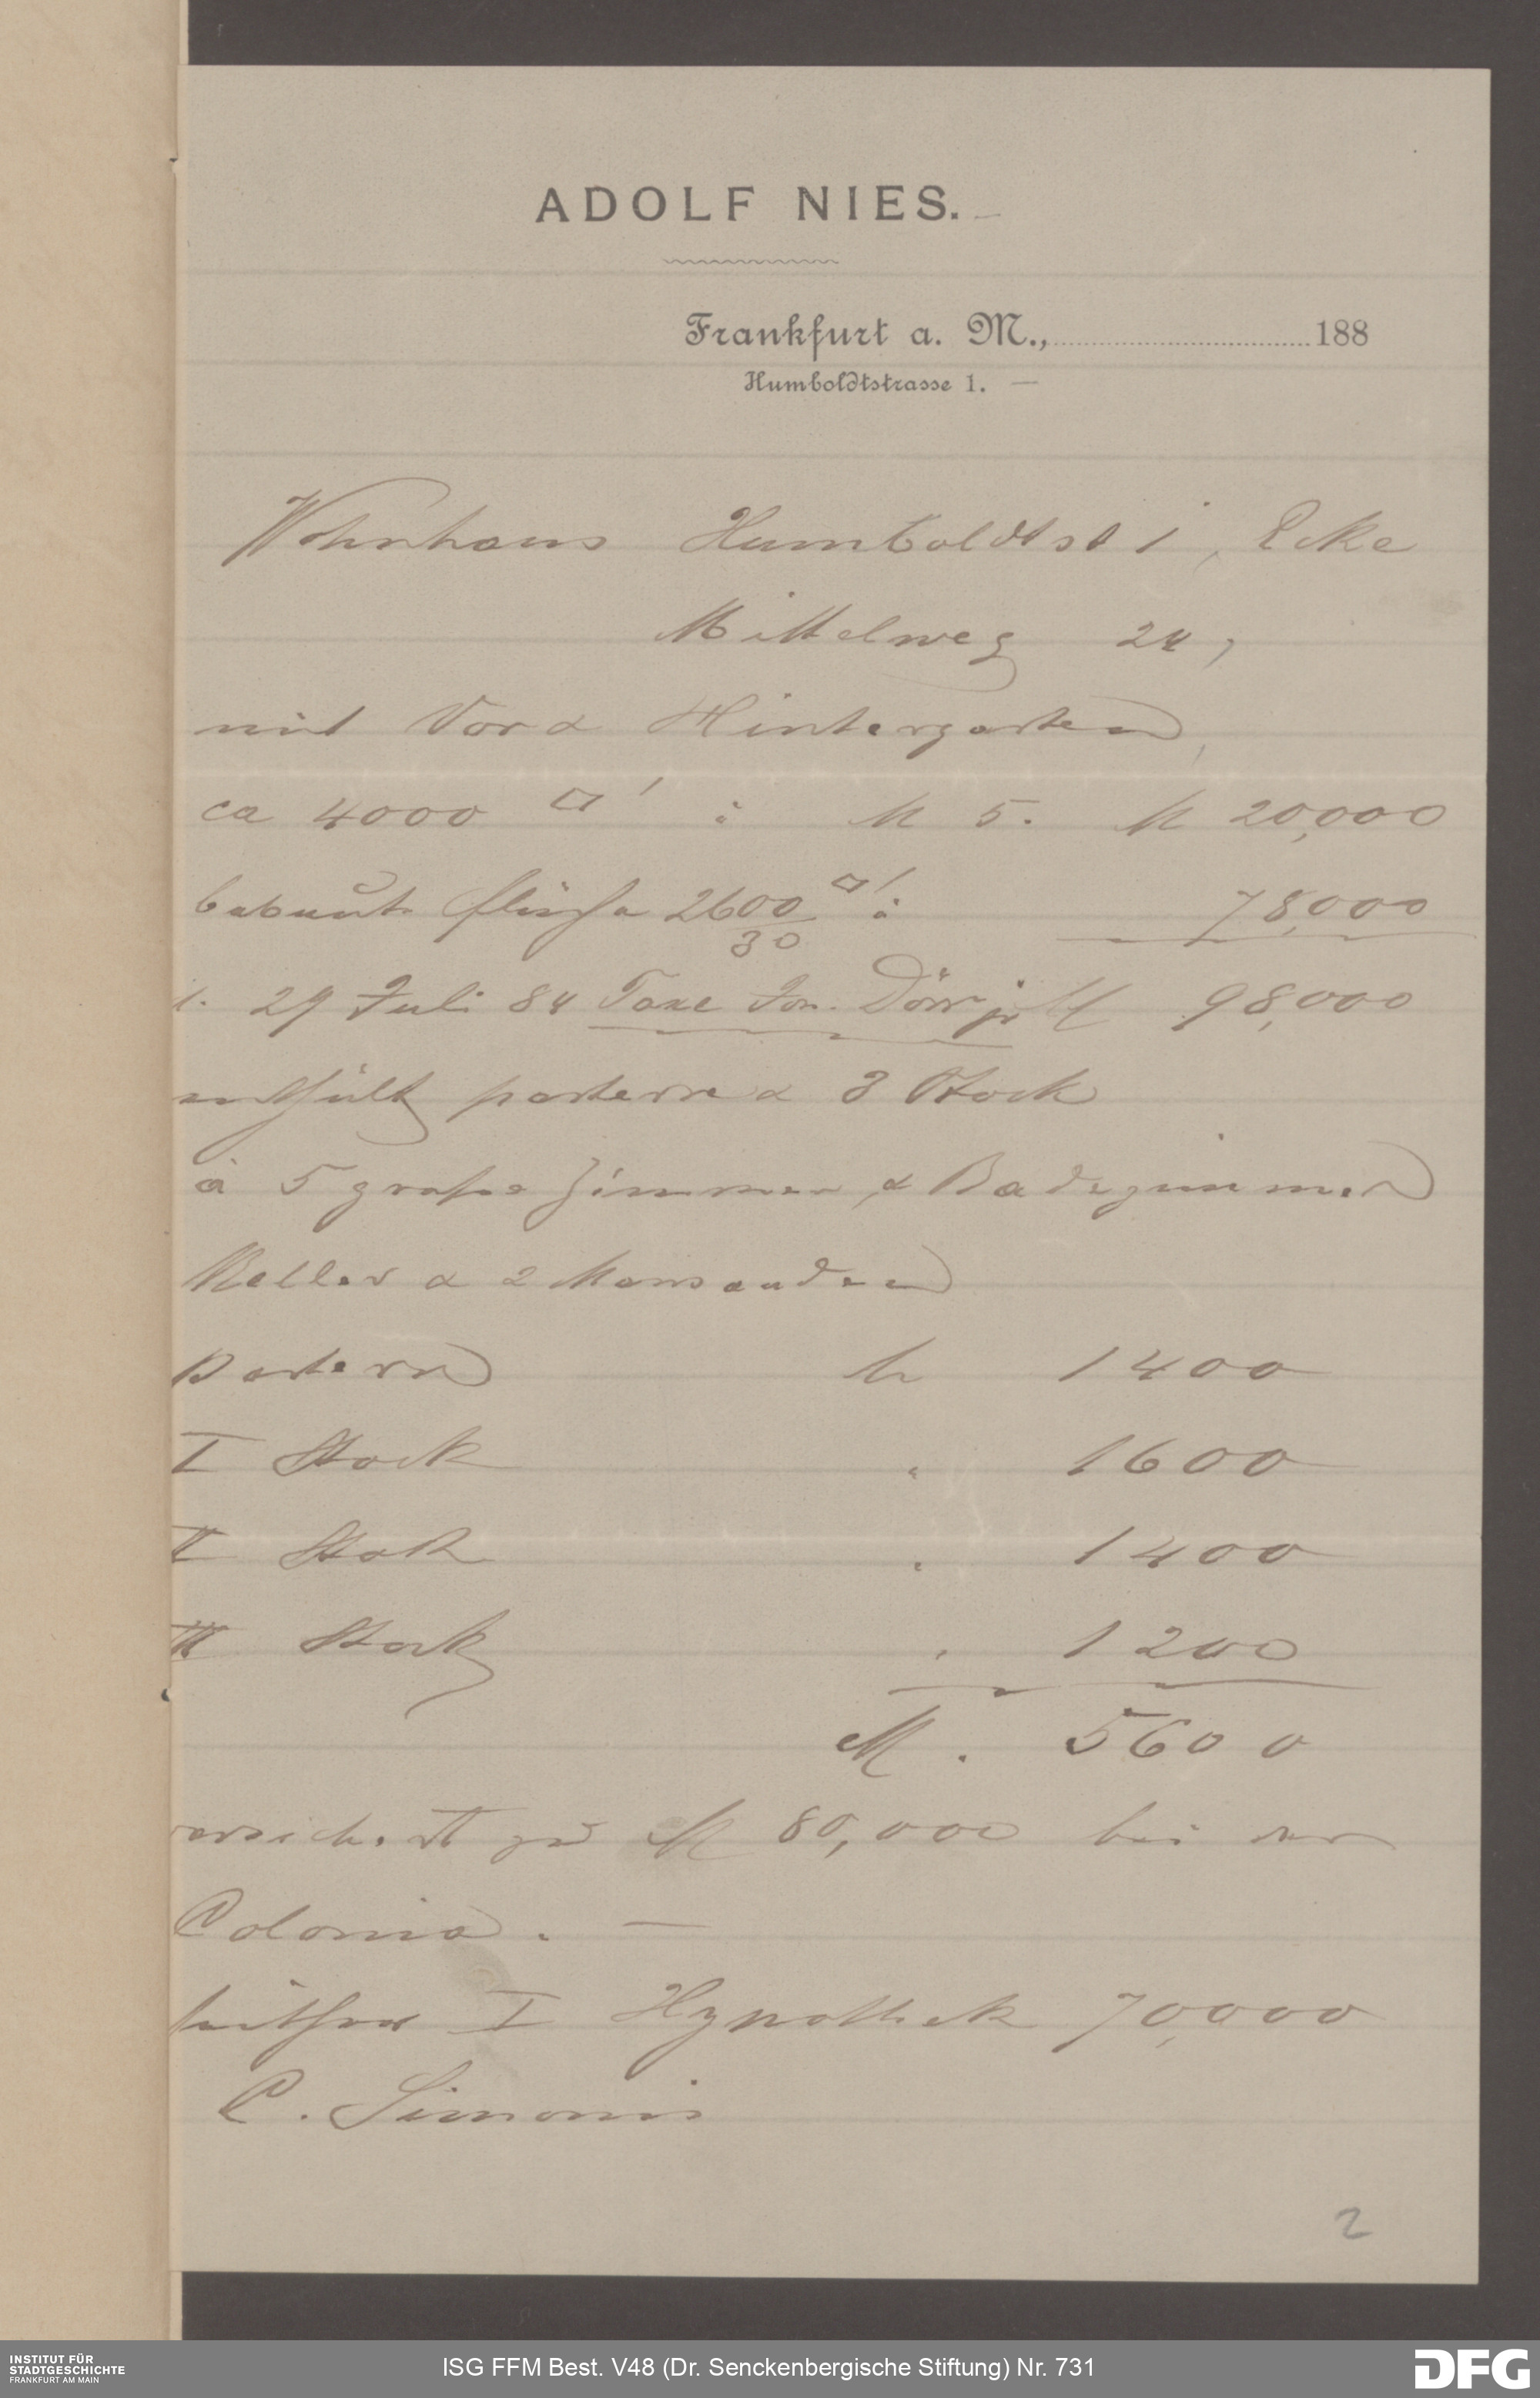 ADOLF NIES.
Frankfurt a. M., 188
Humboldtstrasse 1. —
Wohnhaus Humboldtst 1, Ecke
Mittelweg 24,
mit Vor & Hintergarten,
ca 4000 □' à M 5. M 20,000
bebaute Fläche 2600 □' à 78,000
30
l. 29 Juli 84 Taxe Dörr jr M 98,000
enthält parterre & 3 Stock
à 5 große Zimmer, & Badezimmer
Keller & 2 Mansarden
Parterre M 1400
I Stock " 1600
II Stock " 1400
III Stock " 1200
M. 5600
versichert zu M 80,000 bei der
Colonia. —
seither I Hypothek 70,000
C. Simonis
2
INSTITUT FÜR
STADTGESCHICHTE
FRANKFURT AM MAIN
ISG FFM Best. V48 (Dr. Senckenbergische Stiftung) Nr. 731
DFG